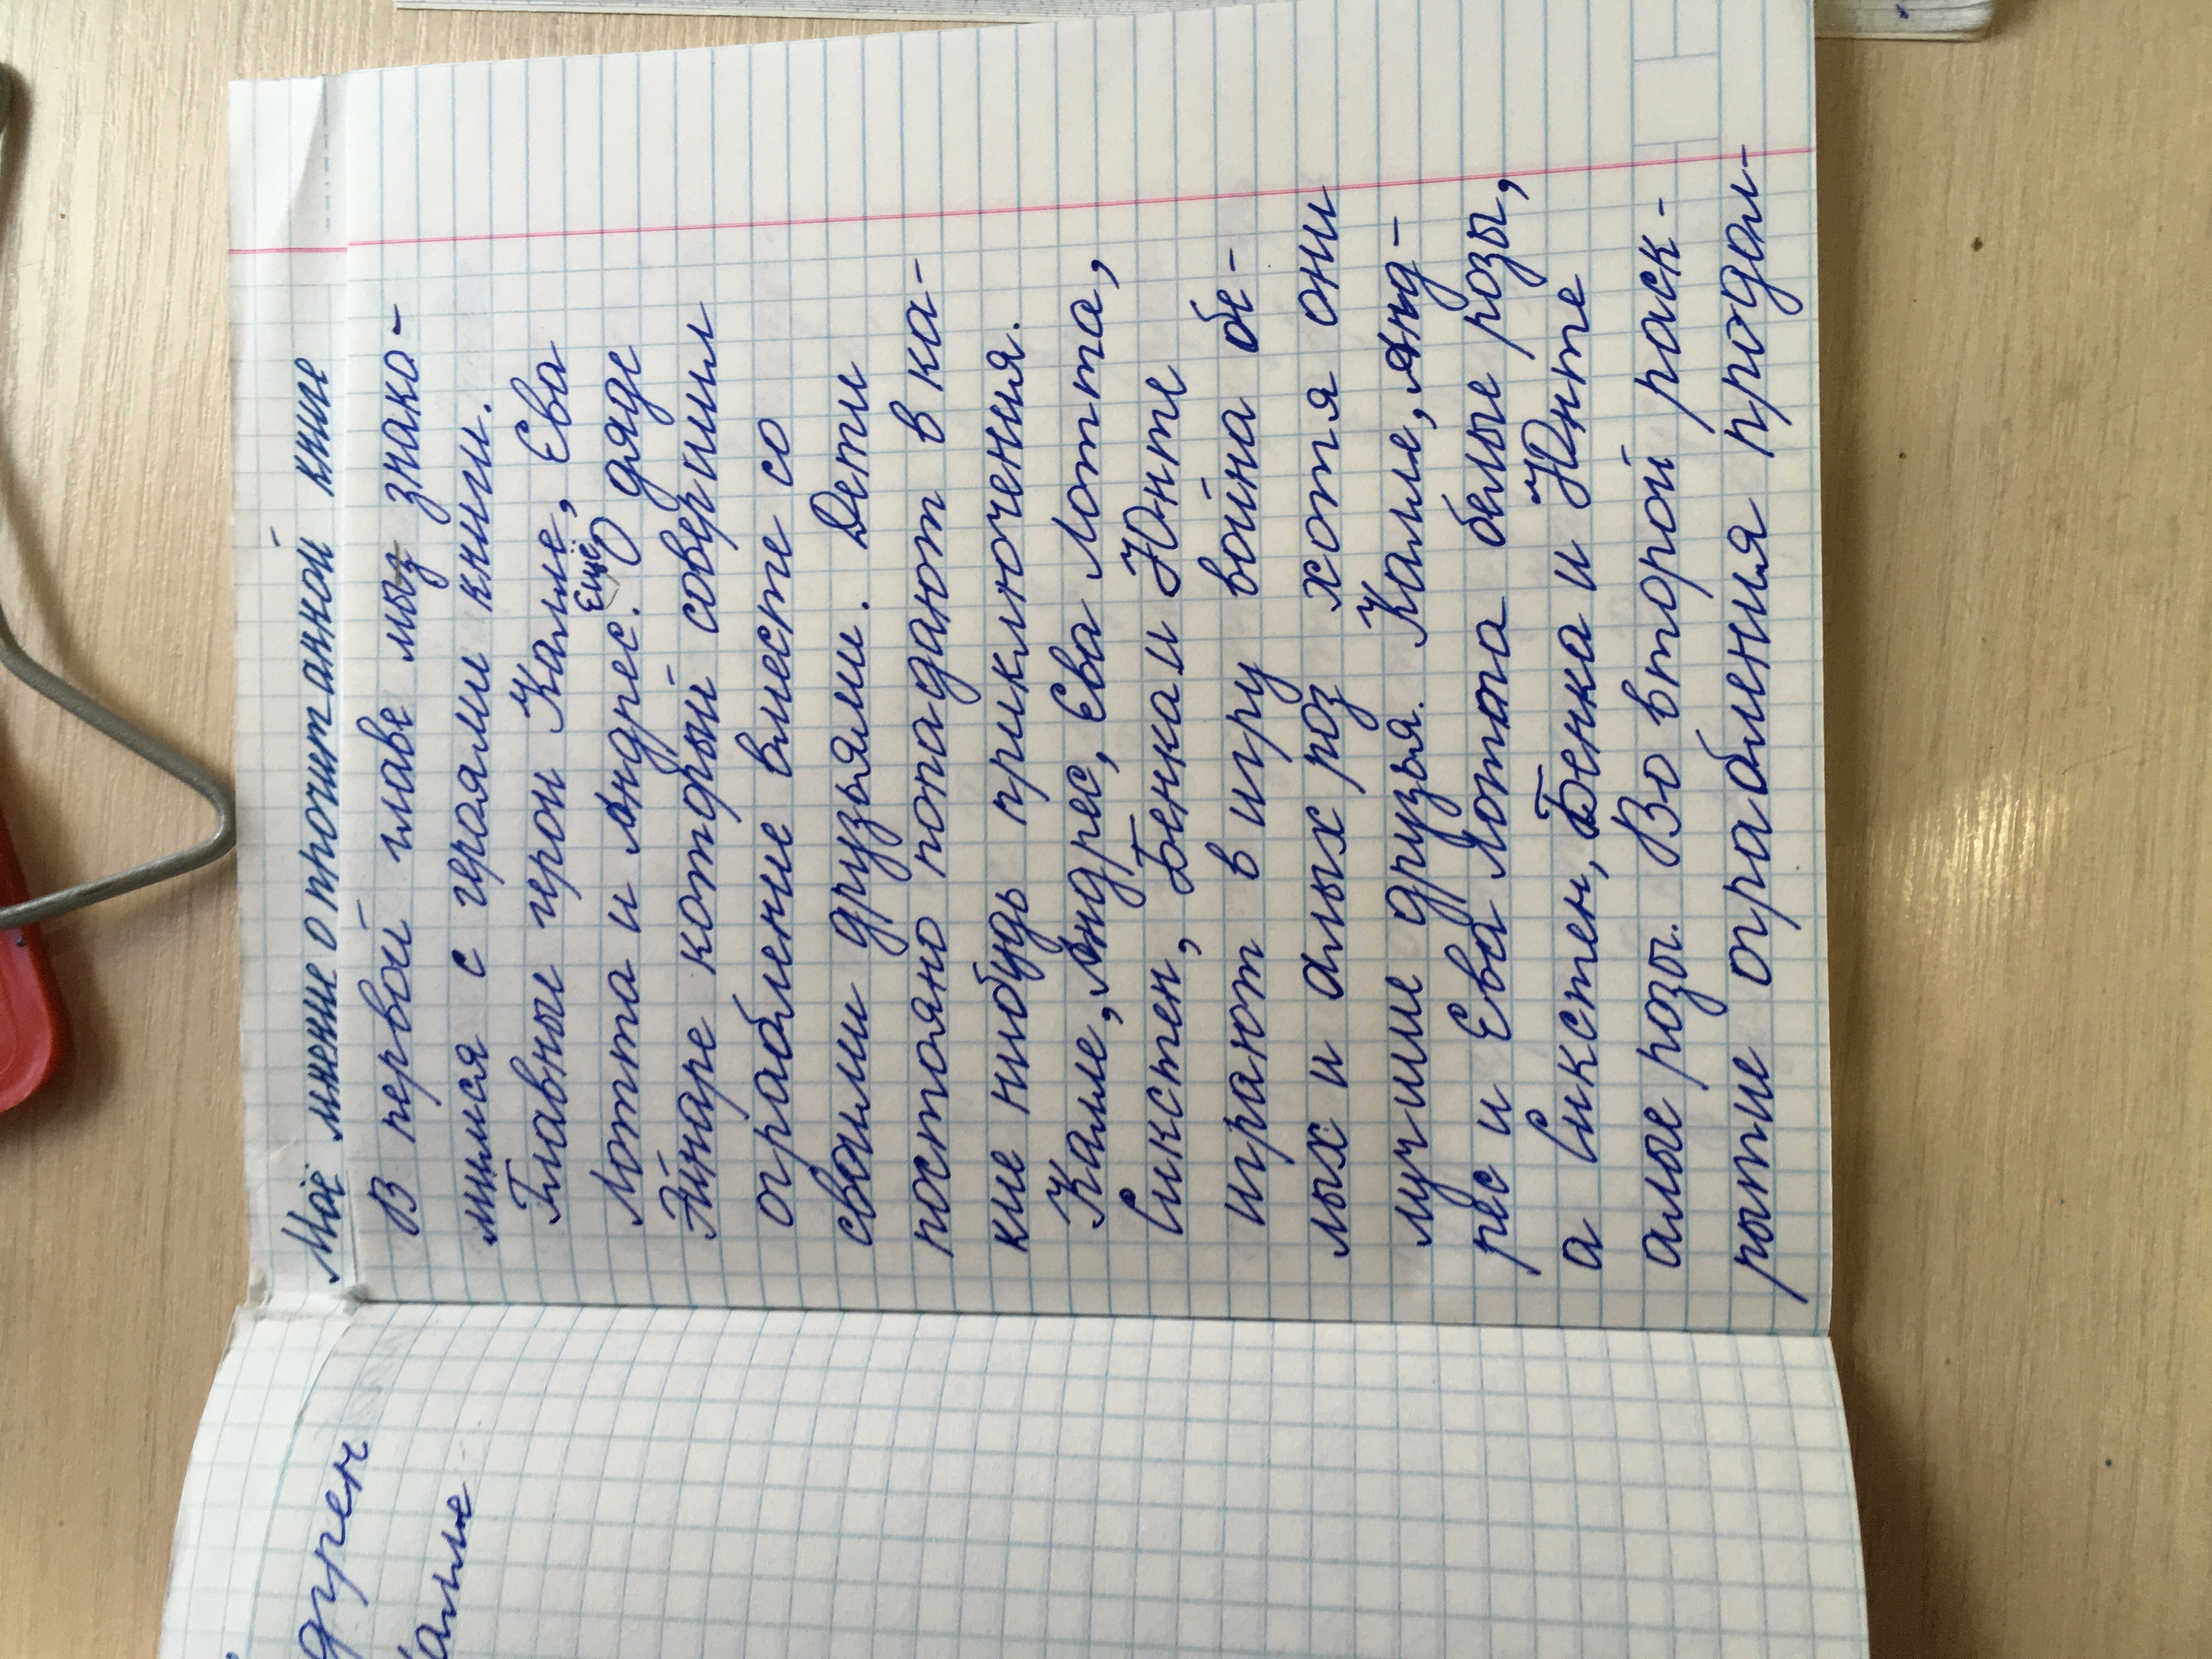 дгрен
алле
Моё мнение о прочитанной книге
В первой главе мы знако-
мимся с героями книги.
Главные грои Калле, Ева
Лотта и Андрес. Ещё О дяде
Эйнаре который совершил
ограбление вместе со
своими друзьями. Дети
постояно попадают в ка-
кие нибудь приключения.
Калле, Андрес, Ева Лотта,
Сикстен, Бенка и Юнте
играют в игру война бе-
лых и алых роз хотя они
лучшие друзья. Калле, Анд-
рес и Ева Лотта белые розы,
а Сикстен, Бенка и Юнте
алые розы. Во второй раск-
рытие ограбления продол-